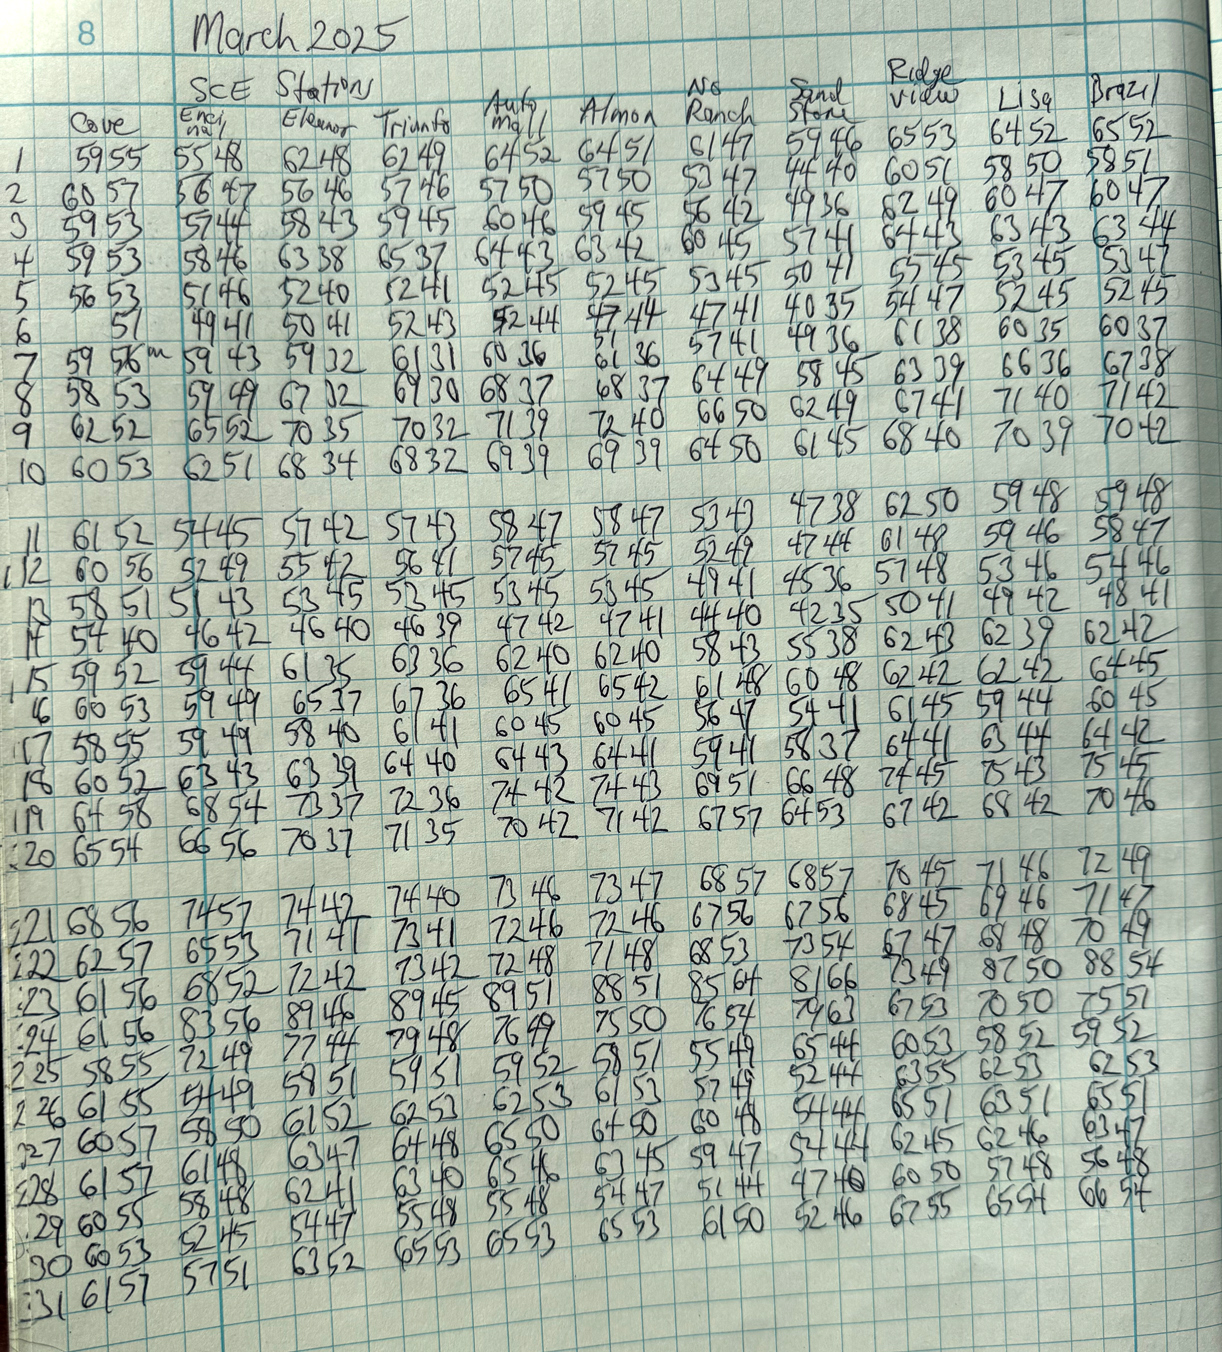 8 March 2025
SCE Stations
Cove Encinal Eleanor Triunfo Auto mall Almon No Ranch Sand Stone Ridge View Lisa Brazil
1 5955 5548 6248 6249 6452 6451 6147 5946 6553 6452 6552
2 6057 5647 5646 5746 5750 5750 5347 4440 6051 5850 5851
3 5953 5744 5843 5945 6046 5945 5642 4936 6249 6047 6047
4 5953 5846 6338 6537 6443 6342 6045 5741 6443 6343 6344
5 5653 5146 5240 5241 5245 5245 5345 5041 5545 5345 5347
6 51 4941 5041 5243 5244 4744 4741 4035 5447 5245 5245
7 59 56m 5943 5932 6131 6036 6136 5741 4936 6138 6035 6037
8 5853 5949 6732 6930 6837 6837 6449 5845 6339 6636 6738
9 6252 6552 7035 7032 7139 7240 6650 6249 6741 7140 7142
10 6053 6251 6834 6832 6939 6939 6450 6145 6840 7039 7042
11 6152 5445 5742 5743 5847 5847 5343 4738 6250 5948 5948
12 6056 5249 5542 5641 5745 5745 5249 4744 6148 5946 5847
13 5851 5143 5345 5345 5345 5345 4941 4536 5748 5346 5446
14 5440 4642 4640 4639 4742 4741 4440 4235 5041 4942 4841
15 5952 5944 6135 6336 6240 6240 5843 5538 6243 6239 6242
16 6053 5949 6537 6736 6541 6542 6148 6048 6242 6242 6445
17 5855 5949 5840 6141 6045 6045 5647 5441 6145 5944 6045
18 6052 6343 6339 6440 6443 6441 5941 5837 6441 6344 6442
19 6458 6854 7337 7236 7442 7443 6951 6648 7445 7543 7545
20 6554 6656 7037 7135 7042 7142 6757 6453 6742 6842 7046
21 6856 7457 7442 7440 7346 7347 6857 6857 7045 7146 7249
22 6257 6553 7141 7341 7246 7246 6756 6756 6845 6946 7147
23 6156 6852 7242 7342 7248 7148 6853 7354 6747 6848 7049
24 6156 8356 8946 8945 8951 8851 8564 8166 7349 8750 8854
25 5855 7249 7744 7948 7649 7550 7654 7963 6753 7050 7551
26 6155 5449 5851 5951 5952 5851 5549 6544 6053 5852 5952
27 6057 5850 6152 6253 6253 6153 5749 5244 6355 6253 6253
28 6157 6148 6347 6448 6550 6450 6048 5444 6551 6351 6551
29 6055 5848 6241 6340 6546 6345 5947 5444 6245 6246 6347
30 6053 5245 5447 5548 5548 5447 5144 4740 6050 5748 5648
31 6157 5751 6352 6553 6553 6553 6150 5246 6755 6554 6654